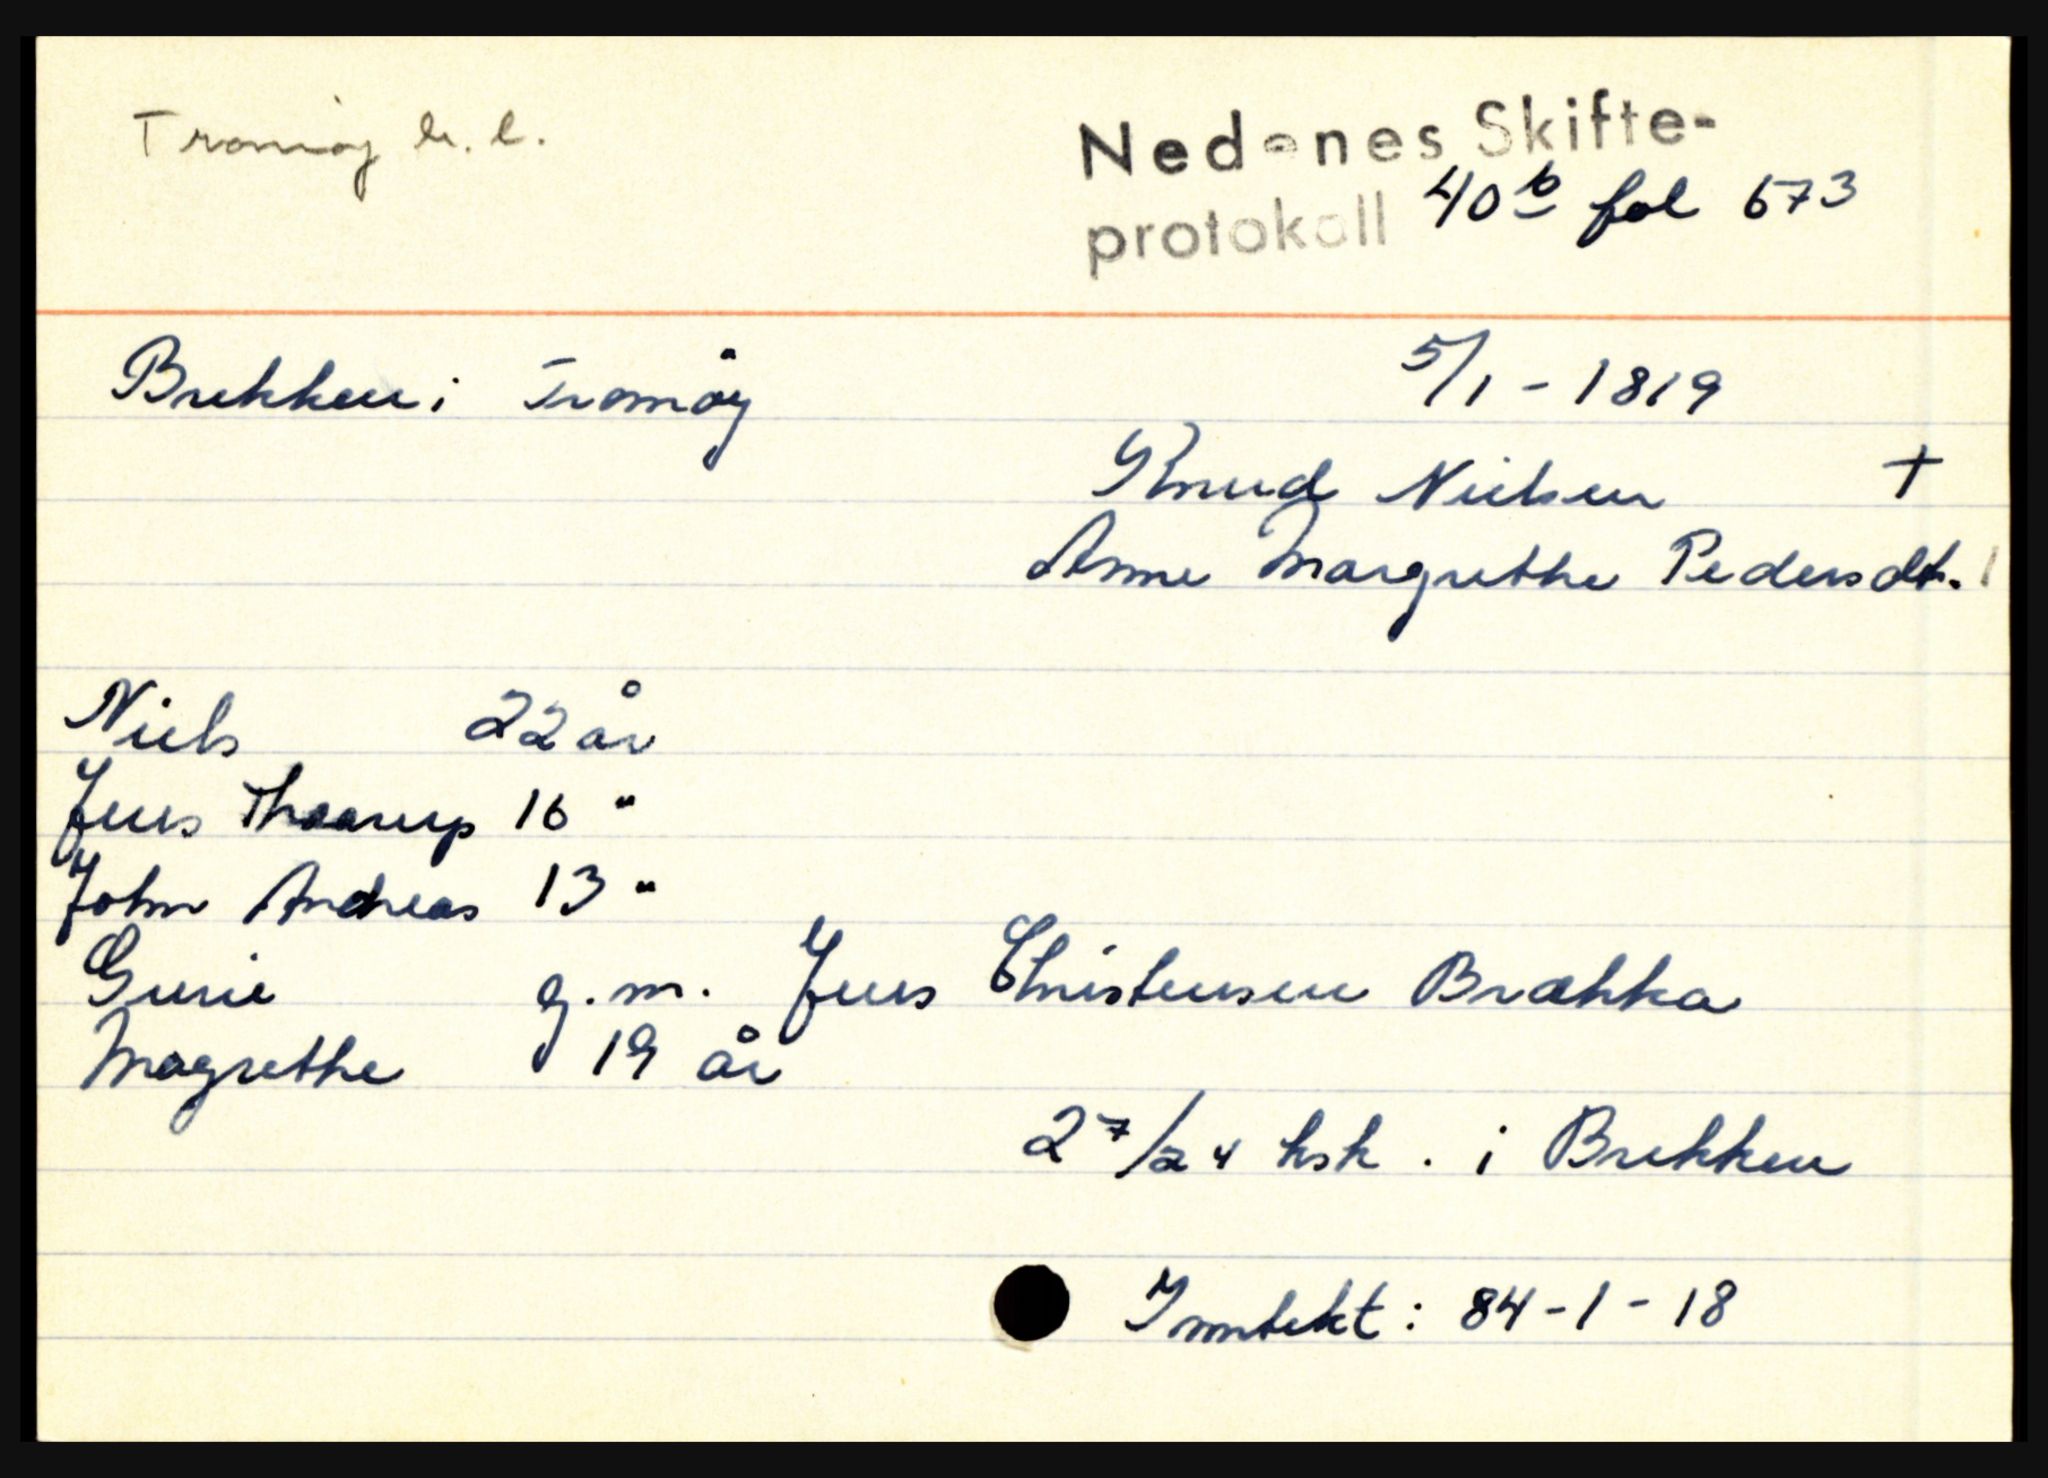 Tromøy h. l.
Nedenes Skifte-
protokoll 40 b fol 673
Brekken i Tromøy
5/1 - 1819
Knud Nielsen +
Anne Margrethe Pedersdt.
Niels 22 år
Jens Thaarup 16 "
John Andreas 13 "
Gurie g. m. Jens Christensen Brækka
Magrethe 19 år
2 7/24 hsk. i Brekken
Inntekt: 84-1-18